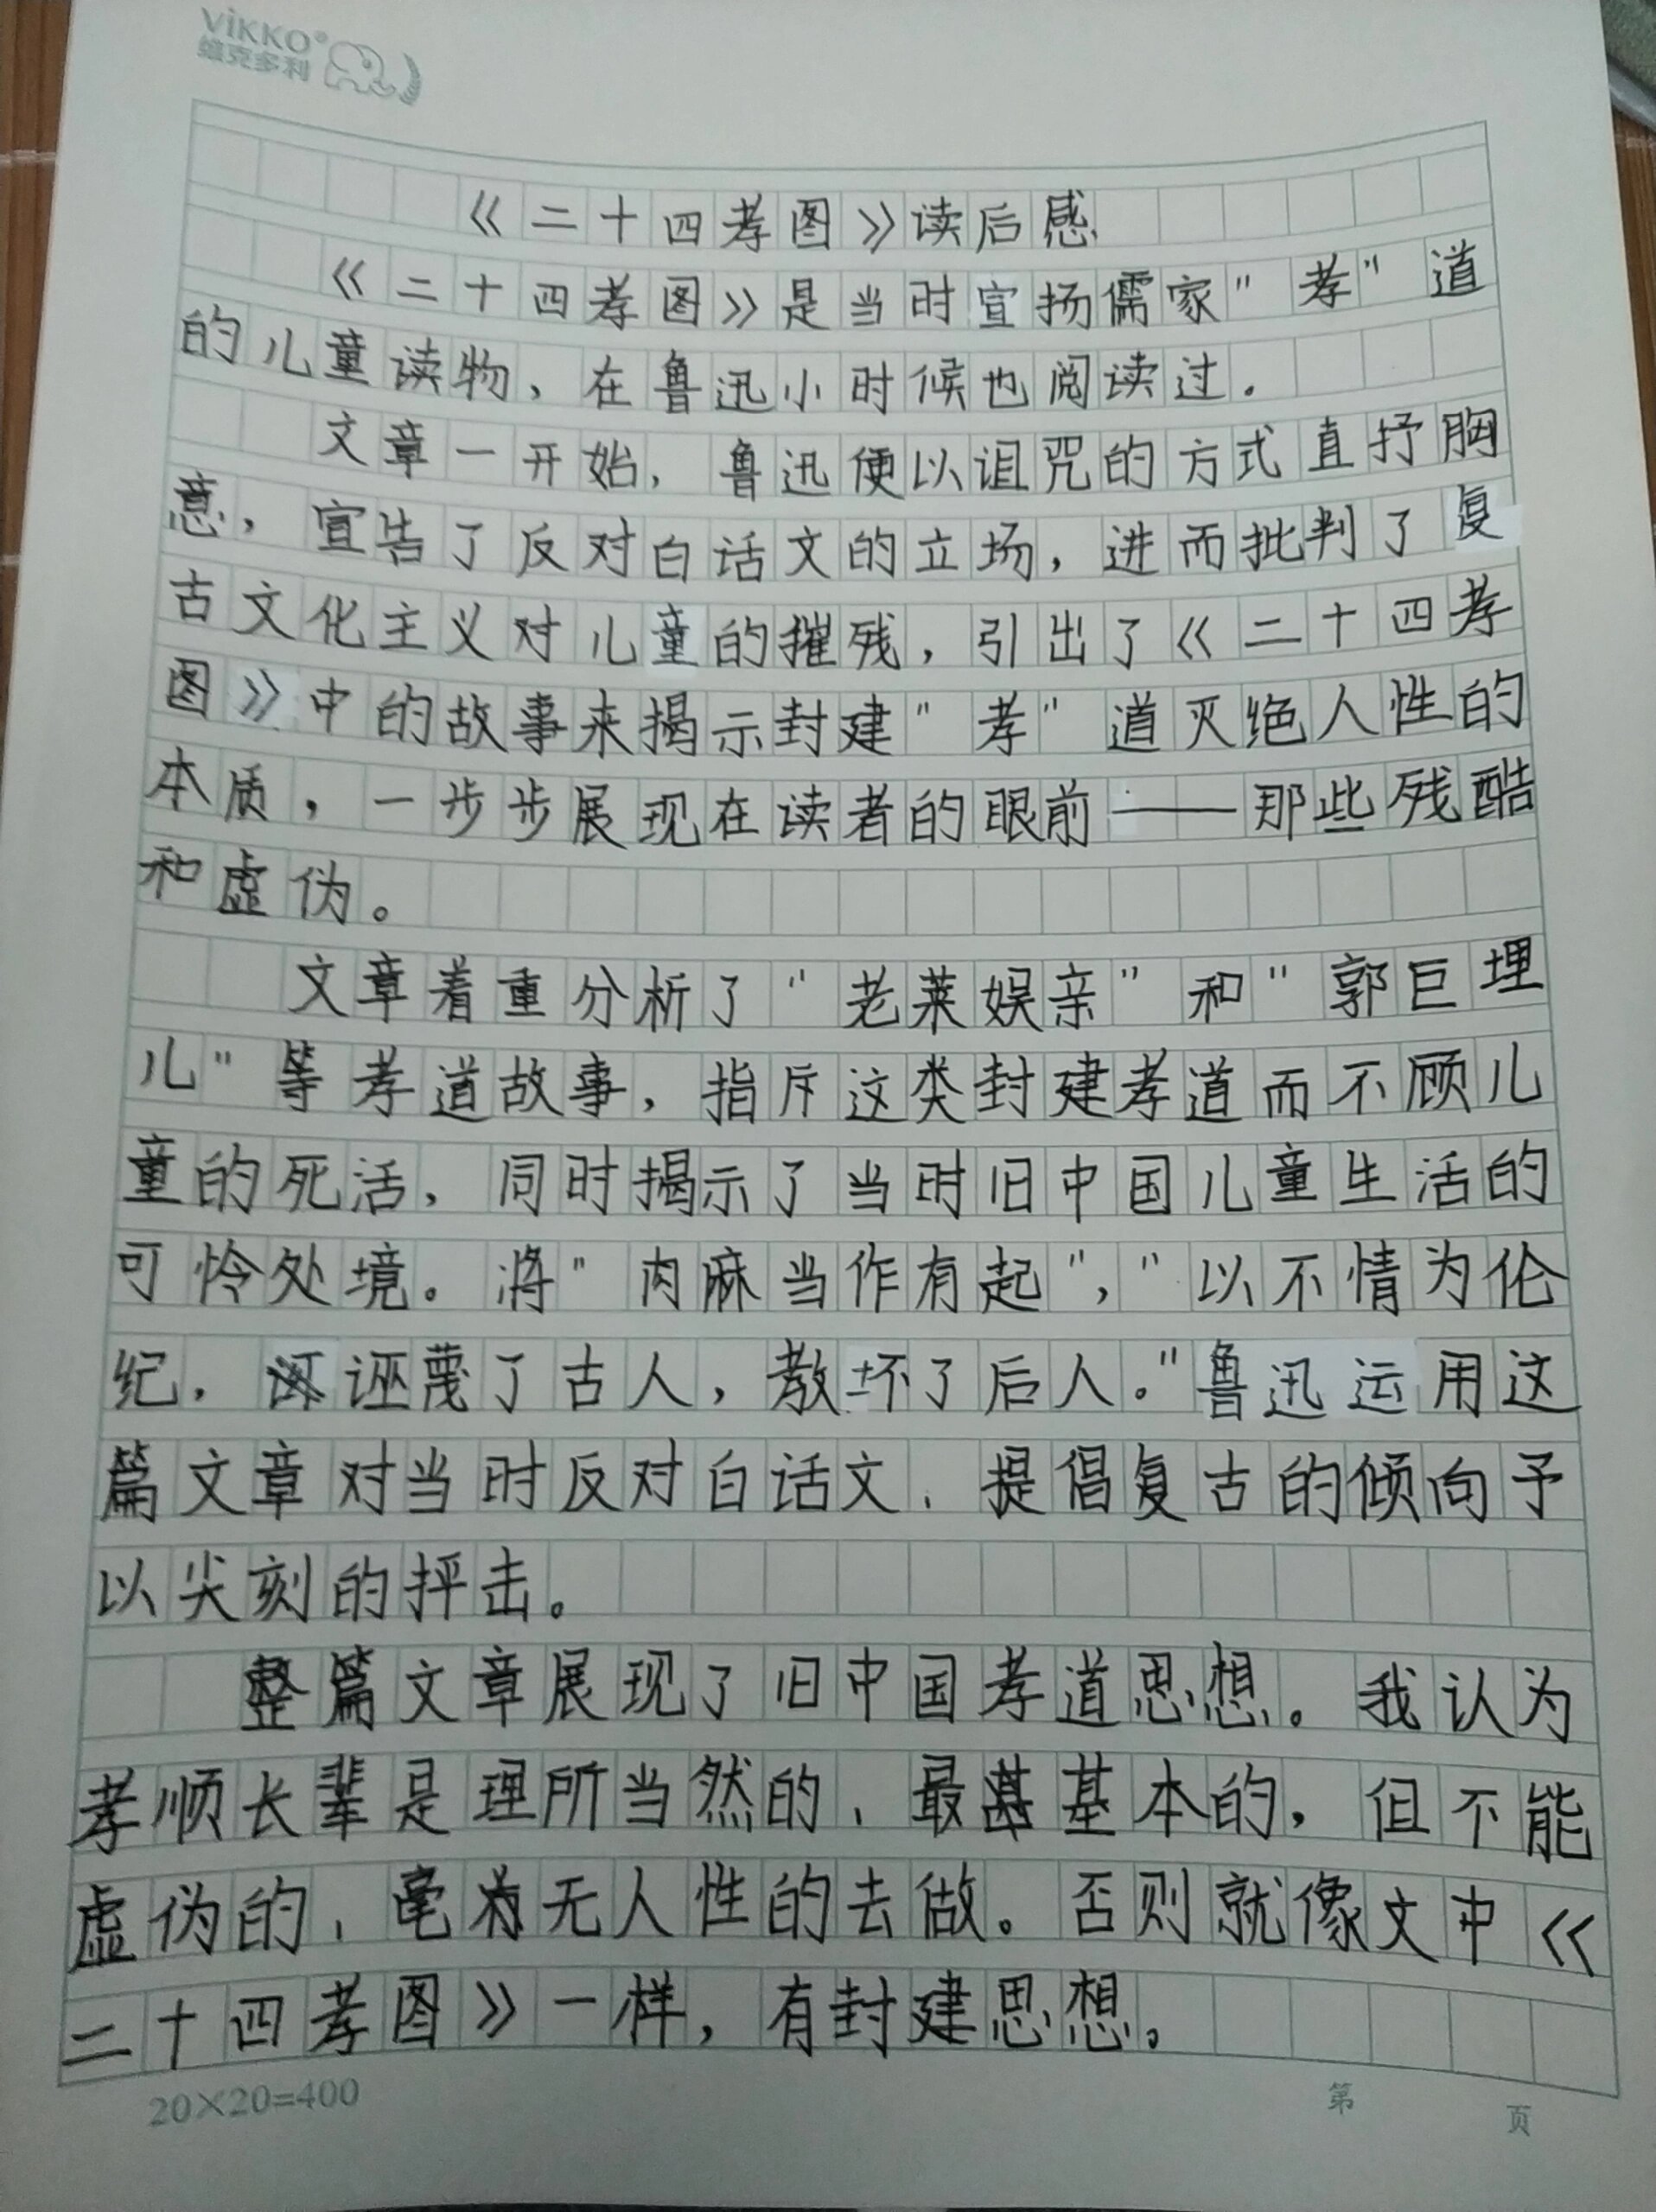 ViKKO®
维克多利
《二十四孝图》读后感
《二十四孝图》是当时宣扬儒家"孝"道
的儿童读物，在鲁迅小时候也阅读过.
文章一开始，鲁迅便以诅咒的方式直抒胸
意，宣告了反对白话文的立场，进而批判了复
古文化主义对儿童的摧残，引出了《二十四孝
图》中的故事来揭示封建"孝"道灭绝人性的
本质，一步步展现在读者的眼前——那些残酷
和虚伪。
文章着重分析了"老莱娱亲"和"郭巨埋
儿"等孝道故事，指斥这类封建孝道而不顾儿
童的死活，同时揭示了当时旧中国儿童生活的
可怜处境。将"肉麻当作有起"，"以不情为伦
纪，诬蔑了古人，教坏了后人。"鲁迅运用这
篇文章对当时反对白话文、提倡复古的倾向予
以尖刻的抨击。
整篇文章展现了旧中国孝道思想。我认为
孝顺长辈是理所当然的、最基本的，但不能
虚伪的、毫无人性的去做。否则就像文中《
二十四孝图》一样，有封建思想。
20×20=400
第 页